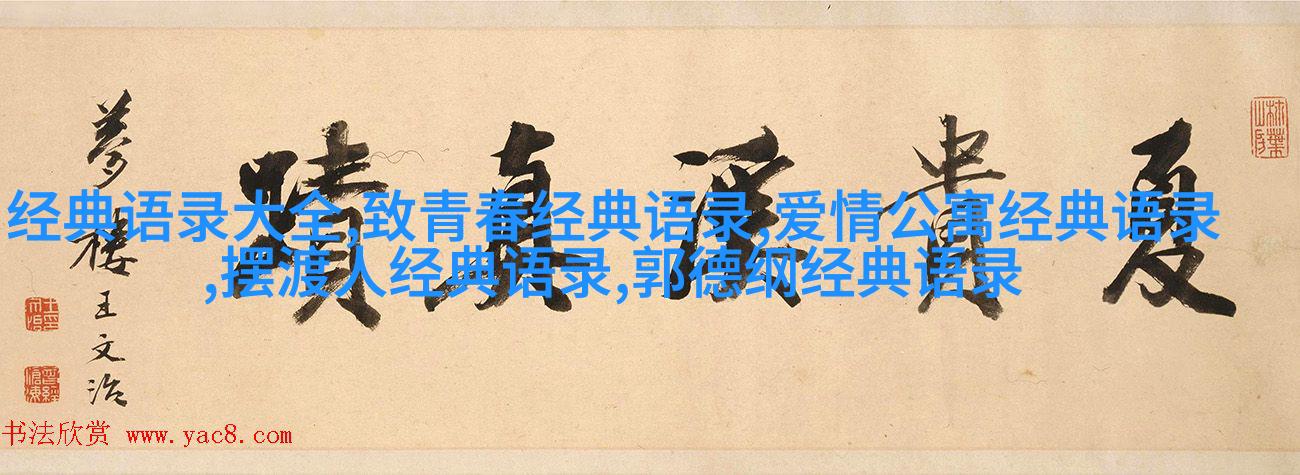 夏貴真蹟
夢樓王文治
经典语录大全,致青春经典语录,爱情公寓经典语录
,摆渡人经典语录,郭德纲经典语录
书法欣赏 www.yac8.com